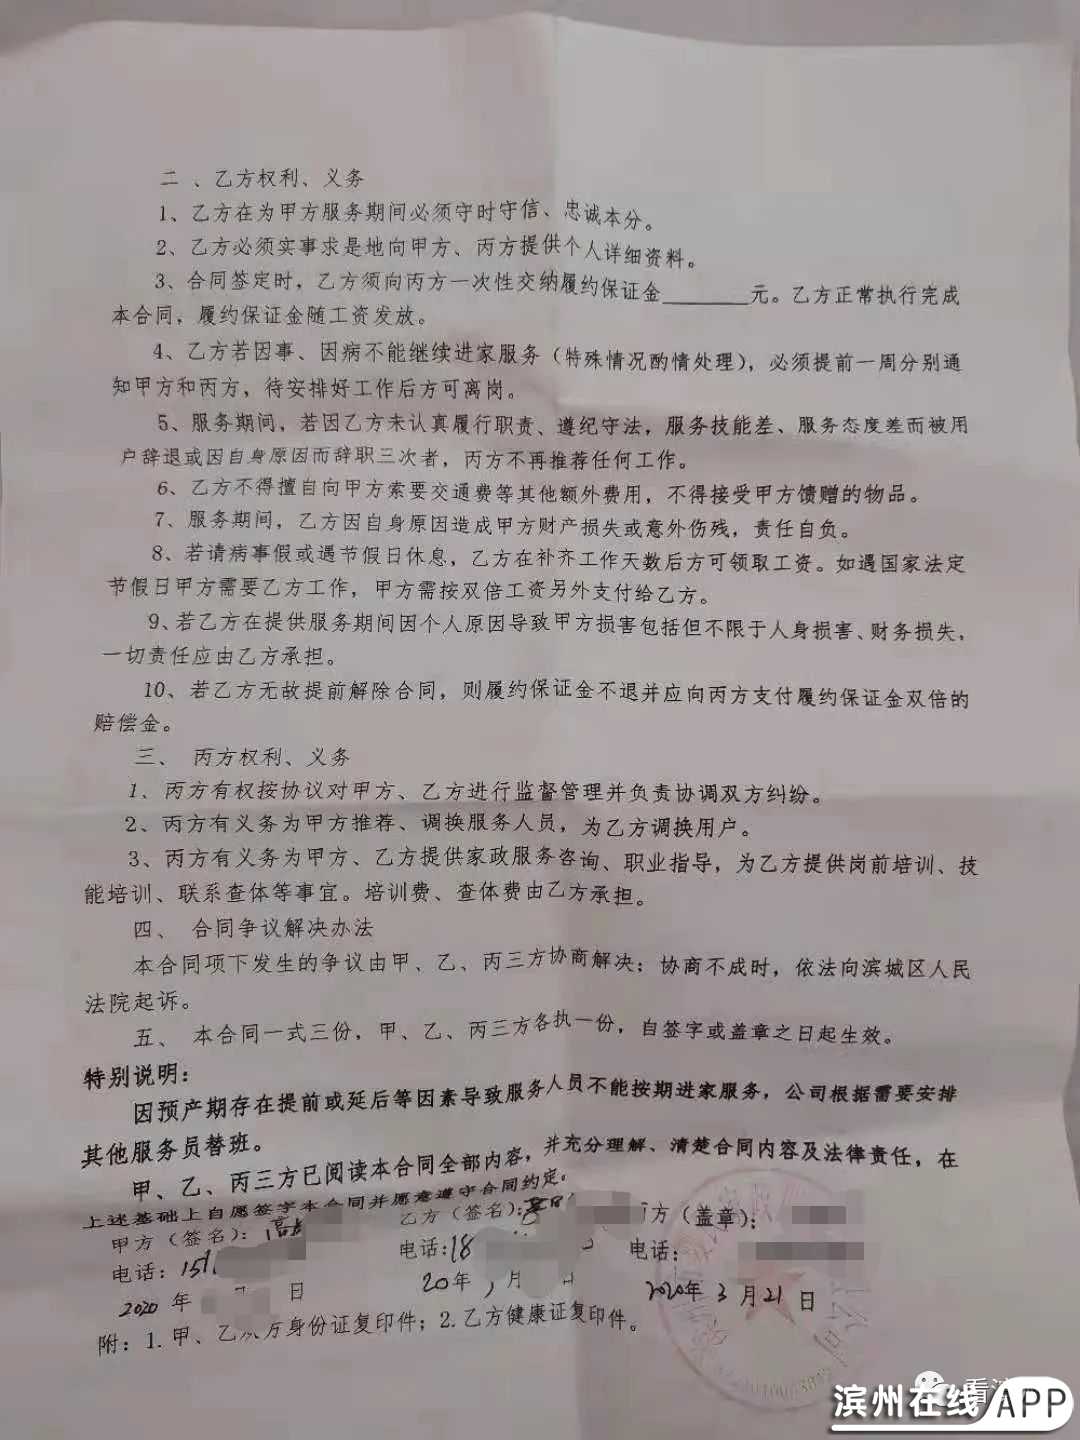 二、乙方权利、义务
1、乙方在为甲方服务期间必须守时守信、忠诚本分。
2、乙方必须实事求是地向甲方、丙方提供个人详细资料。
3、合同签定时，乙方须向丙方一次性交纳履约保证金________元。乙方正常执行完成
本合同，履约保证金随工资发放。
4、乙方若因事、因病不能继续进家服务（特殊情况酌情处理），必须提前一周分别通
知甲方和丙方，待安排好工作后方可离岗。
5、服务期间，若因乙方未认真履行职责、遵纪守法，服务技能差、服务态度差而被用
户辞退或因自身原因而辞职三次者，丙方不再推荐任何工作。
6、乙方不得擅自向甲方索要交通费等其他额外费用，不得接受甲方馈赠的物品。
7、服务期间，乙方因自身原因造成甲方财产损失或意外伤残，责任自负。
8、若请病事假或遇节假日休息，乙方在补齐工作天数后方可领取工资。如遇国家法定
节假日甲方需要乙方工作，甲方需按双倍工资另外支付给乙方。
9、若乙方在提供服务期间因个人原因导致甲方损害包括但不限于人身损害、财务损失，
一切责任应由乙方承担。
10、若乙方无故提前解除合同，则履约保证金不退并应向丙方支付履约保证金双倍的
赔偿金。
三、 丙方权利、义务
1、丙方有权按协议对甲方、乙方进行监督管理并负责协调双方纠纷。
2、丙方有义务为甲方推荐、调换服务人员，为乙方调换用户。
3、丙方有义务为甲方、乙方提供家政服务咨询、职业指导，为乙方提供岗前培训、技
能培训、联系查体等事宜。培训费、查体费由乙方承担。
四、 合同争议解决办法
本合同项下发生的争议由甲、乙、丙三方协商解决；协商不成时，依法向滨城区人民
法院起诉。
五、 本合同一式三份，甲、乙、丙三方各执一份，自签字或盖章之日起生效。
特别说明：
因预产期存在提前或延后等因素导致服务人员不能按期进家服务，公司根据需要安排
其他服务员替班。
甲、乙、丙三方已阅读本合同全部内容，并充分理解、清楚合同内容及法律责任，在
上述基础上自愿签字本合同并愿意遵守合同约定。
甲方（签名）： 乙方（签名）： 方（盖章）：
电话：151 电话：18 电话：
2020 年 日 20年 月 2020年 3 月 21 日
附：1.甲、乙双方身份证复印件；2.乙方健康证复印件。
看滨
滨州在线 APP